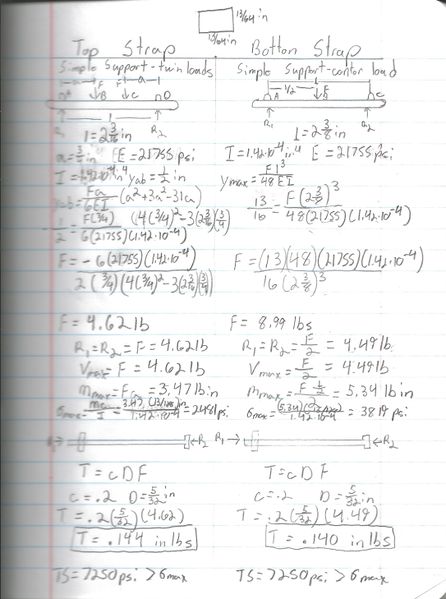 13/64 in
13/64 in
Top Strap
Simple Support-twin loads
a F F a
A B C D
R₁ l R₂
l = 2 3/16 in
a = 3/4 in E = 21755 psi
I = 1.42·10⁻⁴ in⁴ yab = 1/2 in
yab = Fa/6EI (a²+3a²-3la)
1/2 = F(3/4)/6(21755)(1.42·10⁻⁴) (4(3/4)²-3(2 3/16)(3/4))
F = -6(21755)(1.42·10⁻⁴)/2(3/4)(4(3/4)²-3(2 3/16)(3/4))
F = 4.62 lb
R₁ = R₂ = F = 4.62 lb
Vmax = F = 4.62 lb
Mmax = Fa = 3.47 lb in
R₁→ ←R₂
T = cDF
c = .2 D = 5/32 in
T = .2(5/32)(4.62)
T = .144 in lbs
TS = 7250 psi > 6max
Bottom Strap
Simple Support-center load
l/2 F
A B C
R₁ R₂
l = 2 3/8 in
I = 1.42·10⁻⁴ in⁴ E = 21755 psi
ymax = Fl³/48EI
13/16 = F(2 3/8)³/48(21755)(1.42·10⁻⁴)
F = (13)(48)(21755)(1.42·10⁻⁴)/16(2 3/8)³
F = 8.99 lbs
R₁ = R₂ = F/2 = 4.49 lb
Vmax = F/2 = 4.49 lb
= 5.34 lb in
= 3819 psi
R₁→ ←R₂
T = cDF
c = .2 D = 5/32 in
T = .2(5/32)(4.49)
T = .140 in lbs
TS = 7250 psi > 6max